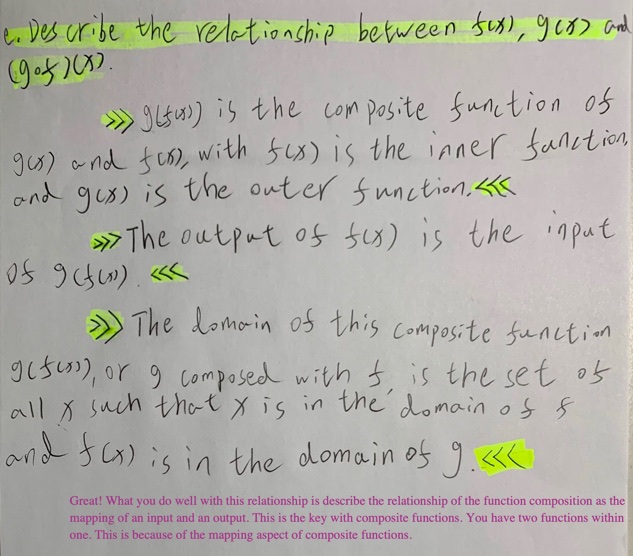 e. Describe the relationship between f(x), g(x) and
(g∘f)(x).
>>> g(f(x)) is the composite function of
g(x) and f(x), with f(x) is the inner function,
and g(x) is the outer function. <<<
>>> The output of f(x) is the input
of g(f(x)). <<<
>>> The domain of this composite function
g(f(x)), or g composed with f, is the set of
all x such that x is in the domain of f
and f(x) is in the domain of g. <<<
Great! What you do well with this relationship is describe the relationship of the function composition as the
mapping of an input and an output. This is the key with composite functions. You have two functions within
one. This is because of the mapping aspect of composite functions.